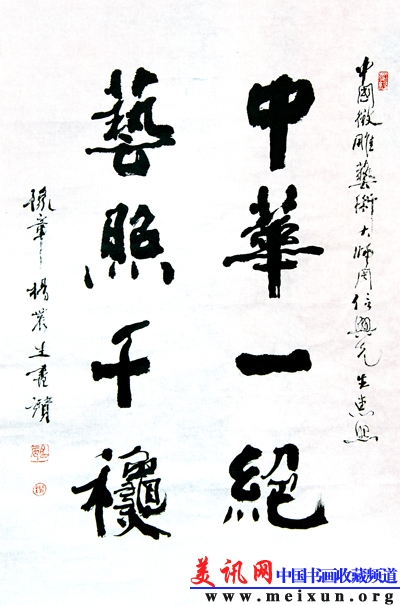 中國微雕藝術大師周信興先生惠與
中華一絕
藝照千龝
豫章楊農生書讚
美讯网 中国书画收藏频道
www.meixun.org